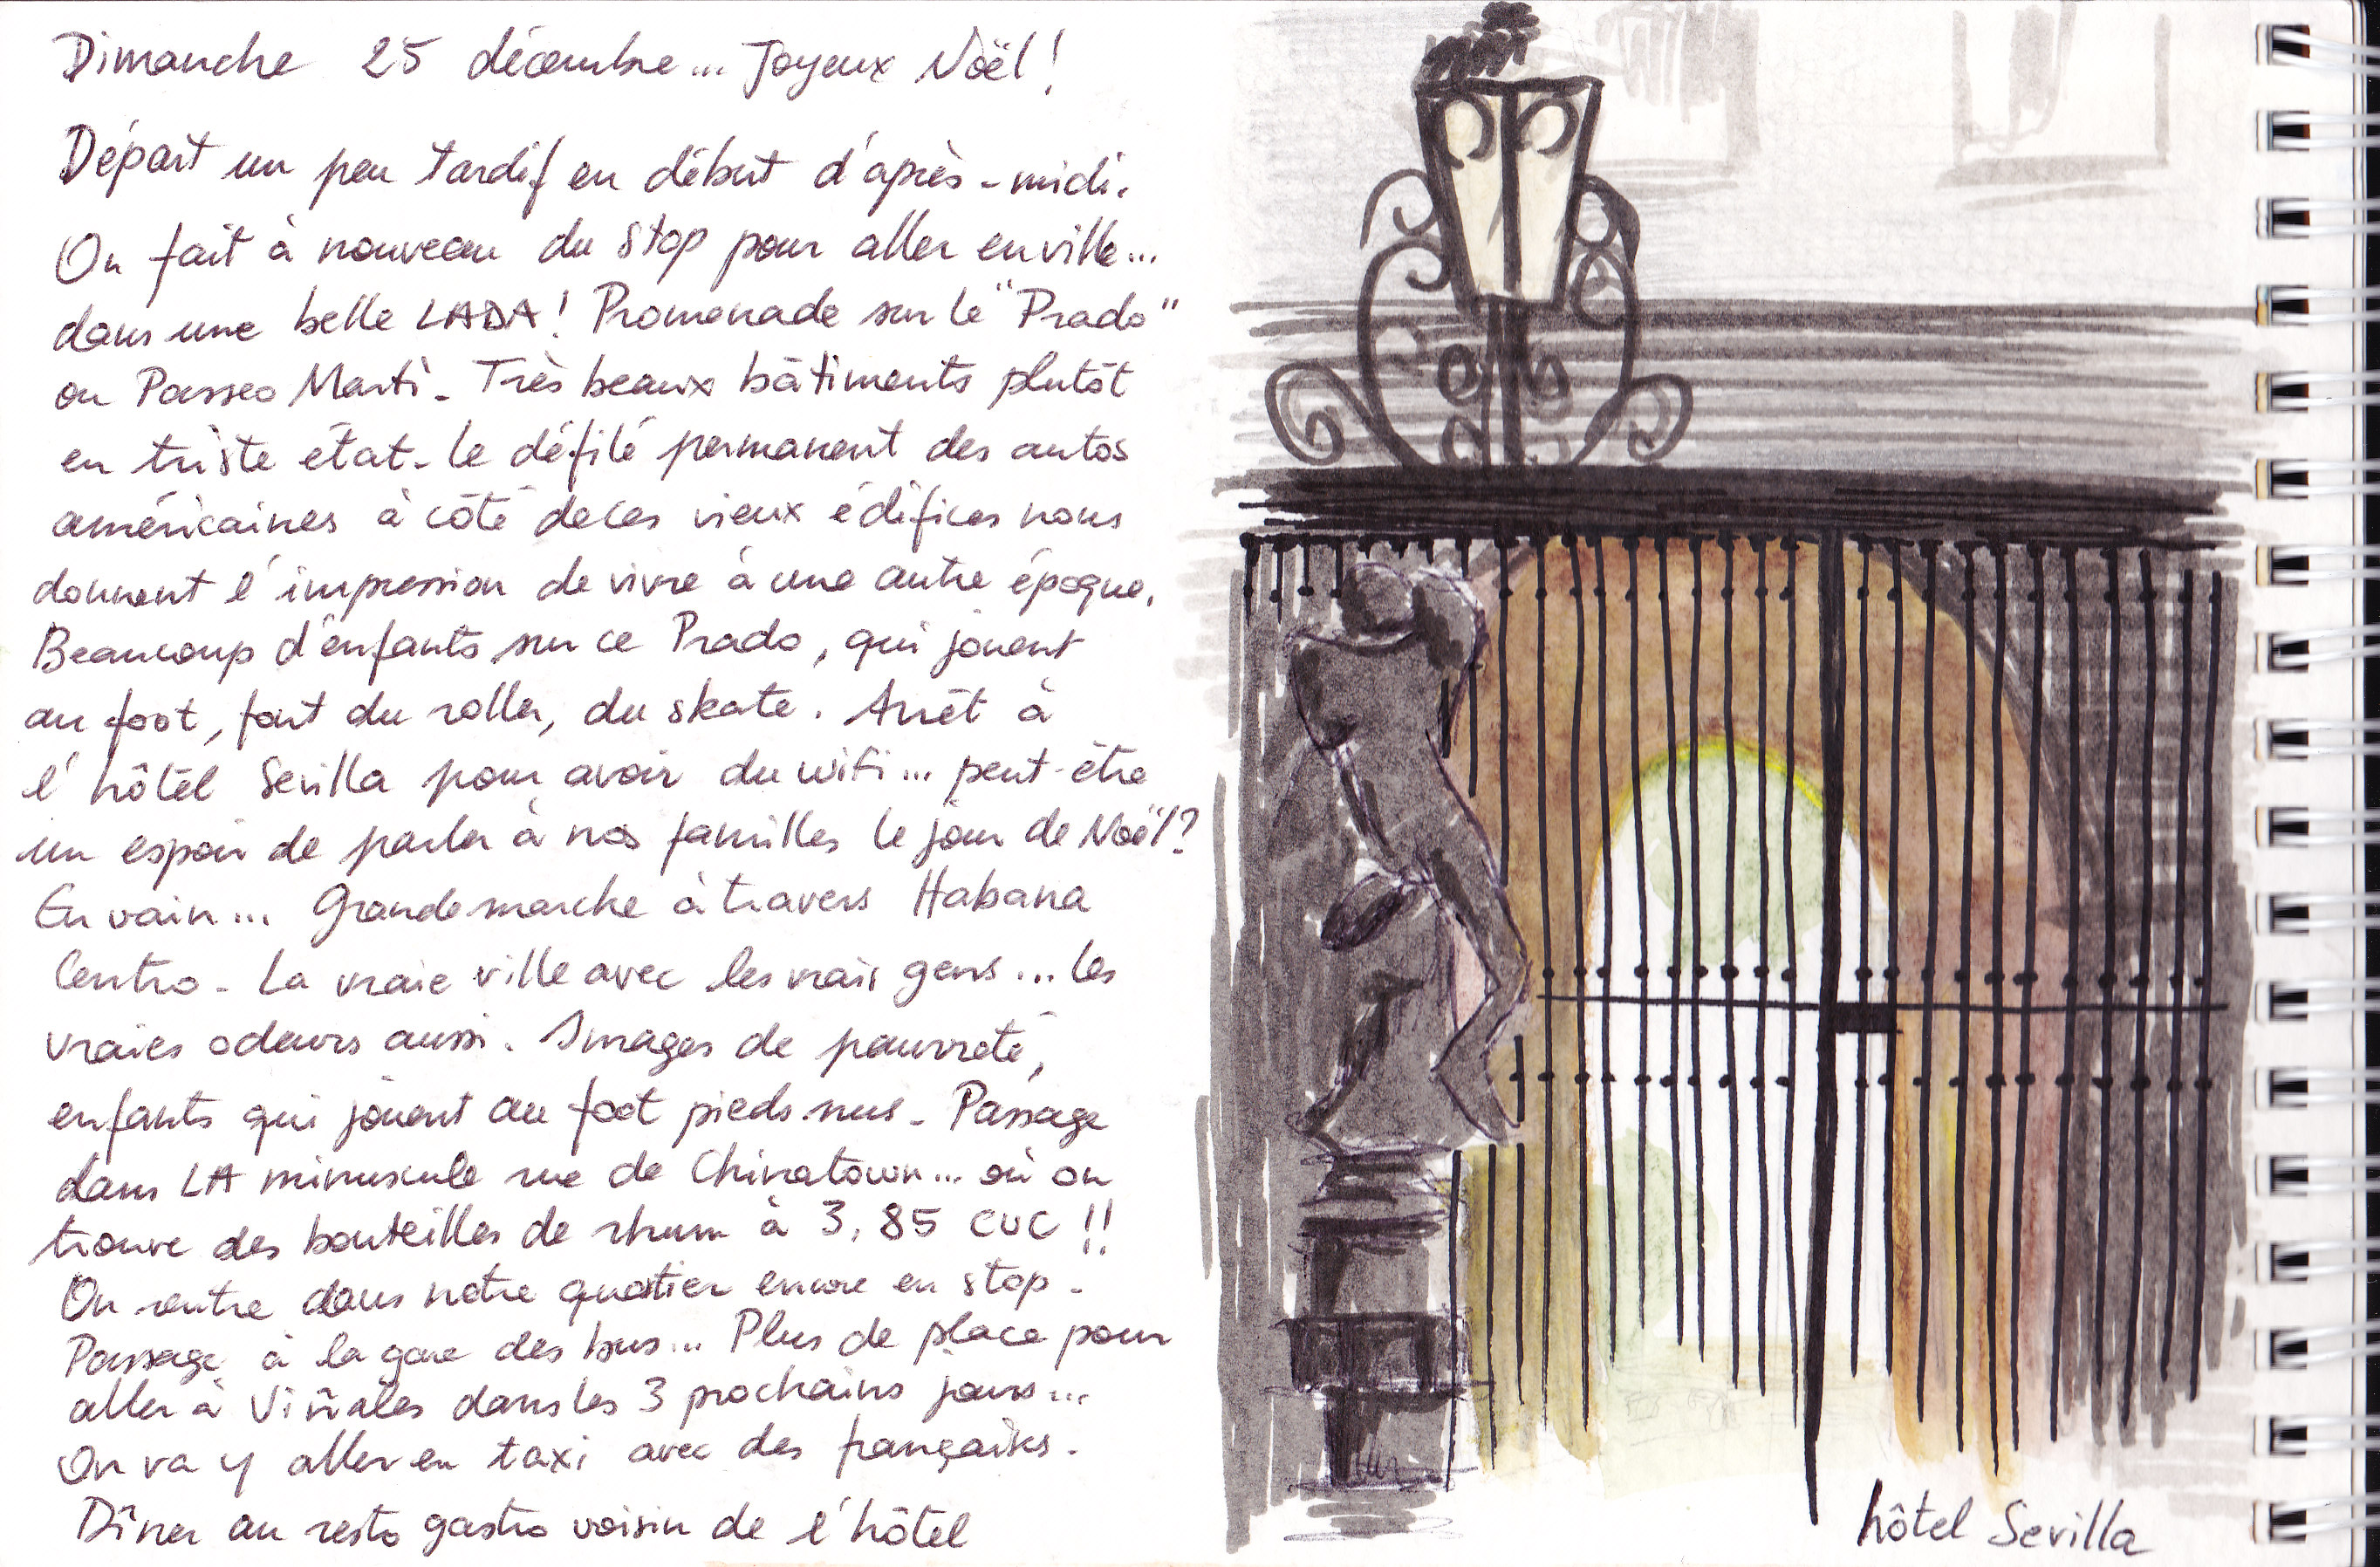 Dimanche 25 décembre... Joyeux Noël !
Départ un peu tardif en début d'après-midi.
On fait à nouveau du stop pour aller en ville...
dans une belle LADA ! Promenade sur le "Prado"
ou Passeo Marti. Très beaux bâtiments plutôt
en triste état. Le défilé permanent des autos
américaines à côté de ces vieux édifices nous
donnent l'impression de vivre à une autre époque.
Beaucoup d'enfants sur ce Prado, qui jouent
au foot, font du roller, du skate. Arrêt à
l'hôtel Sevilla pour avoir du wifi... peut-être
un espoir de parler à nos familles le jour de Noël ?
En vain... Grande marche à travers Habana
Centro. La vraie ville avec les vrais gens... les
vraies odeurs aussi. Images de pauvreté,
enfants qui jouent au foot pieds nus. Passage
dans LA minuscule rue de Chinatown... où on
trouve des bouteilles de rhum à 3,85 CUC !!
On rentre dans notre quartier encore en stop.
Passage à la gare des bus... Plus de place pour
aller à Viñales dans les 3 prochains jours...
On va y aller en taxi avec des français.
Dîner au resto gastro voisin de l'hôtel
hôtel Sevilla